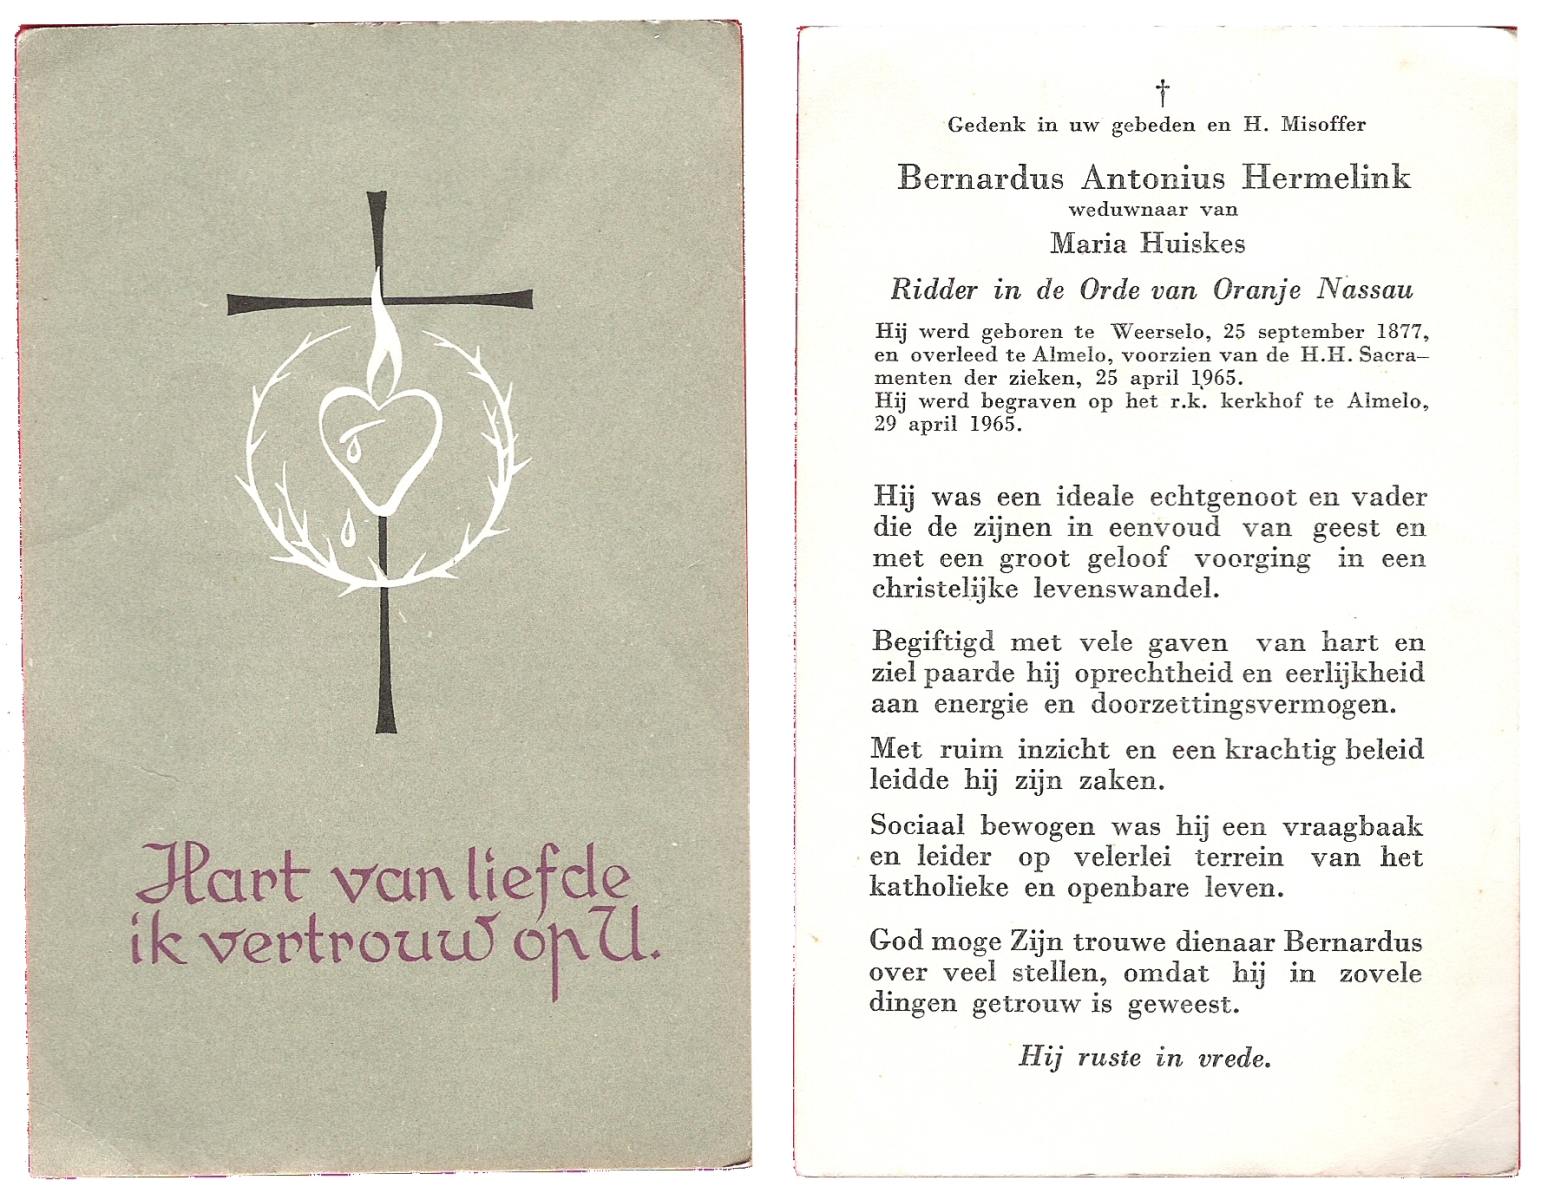 Hart van liefde
ik vertrouw op U.
†
Gedenk in uw gebeden en H. Misoffer
Bernardus Antonius Hermelink
weduwnaar van
Maria Huiskes
Ridder in de Orde van Oranje Nassau
Hij werd geboren te Weerselo, 25 september 1877,
en overleed te Almelo, voorzien van de H.H. Sacra-
menten der zieken, 25 april 1965.
Hij werd begraven op het r.k. kerkhof te Almelo,
29 april 1965.
Hij was een ideale echtgenoot en vader
die de zijnen in eenvoud van geest en
met een groot geloof voorging in een
christelijke levenswandel.
Begiftigd met vele gaven van hart en
ziel paarde hij oprechtheid en eerlijkheid
aan energie en doorzettingsvermogen.
Met ruim inzicht en een krachtig beleid
leidde hij zijn zaken.
Sociaal bewogen was hij een vraagbaak
en leider op velerlei terrein van het
katholieke en openbare leven.
God moge Zijn trouwe dienaar Bernardus
over veel stellen, omdat hij in zovele
dingen getrouw is geweest.
Hij ruste in vrede.